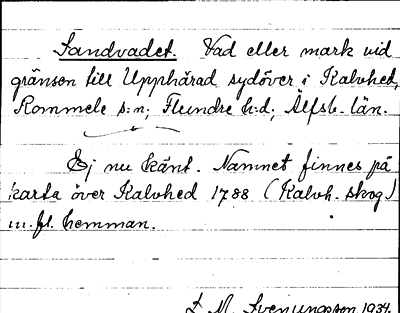 Sandvadet. Vad eller mark vid
gränsen till Upphärad sydöver i Kalvhed,
Rommele s:n; Flundre h:d; Älfsb. län.
Ej nu känt. Namnet finnes på
karta över Kalvhed 1788 (Kalvh. skog)
m. fl. hemman.
Svenungsson 1934.